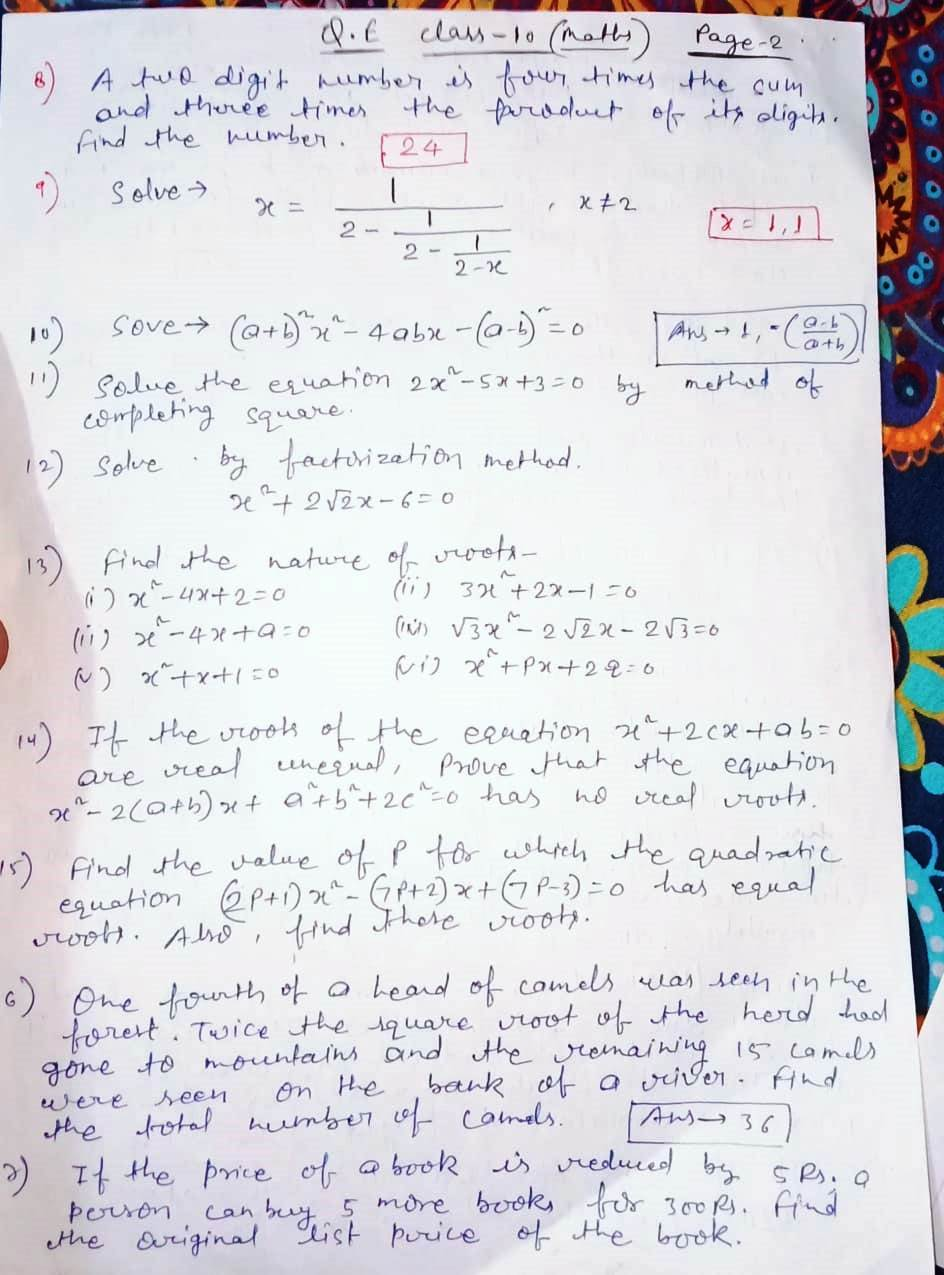 Q.E class-10 (maths) Page-2
8) A two digit number is four times the sum
and three times the product of its digits.
Find the number. 24
9) Solve → x = 1/(2 - 1/(2 - 1/(2-x))) , x ≠ 2 x = 1, 1
10) Sove → (a+b)²x² - 4abx - (a-b)² = 0 Ans → 1, -((a-b)/(a+b))²
11) Solve the equation 2x² - 5x + 3 = 0 by method of
completing square.
12) Solve by factorization method.
x² + 2√2x - 6 = 0
13) Find the nature of roots-
(i) x² - 4x + 2 = 0 (ii) 3x² + 2x - 1 = 0
(iii) x² - 4x + a = 0 (iv) √3x² - 2√2x - 2√3 = 0
(v) x² + x + 1 = 0 (vi) x² + px + 2q = 0
14) If the roots of the equation x² + 2cx + ab = 0
are real unequal, Prove that the equation
x² - 2(a+b)x + a² + b² + 2c² = 0 has no real roots.
15) Find the value of P for which the quadratic
equation (2p+1)x² - (7p+2)x + (7p-3) = 0 has equal
roots. Also, find these roots.
6) One fourth of a heard of camels was seen in the
forest. Twice the square root of the herd had
gone to mountains and the remaining 15 camels
were seen on the bank of a river. Find
the total number of camels. Ans → 36
7) If the price of a book is reduced by 5 Rs. a
person can buy 5 more books for 300 Rs. Find
the original list price of the book.